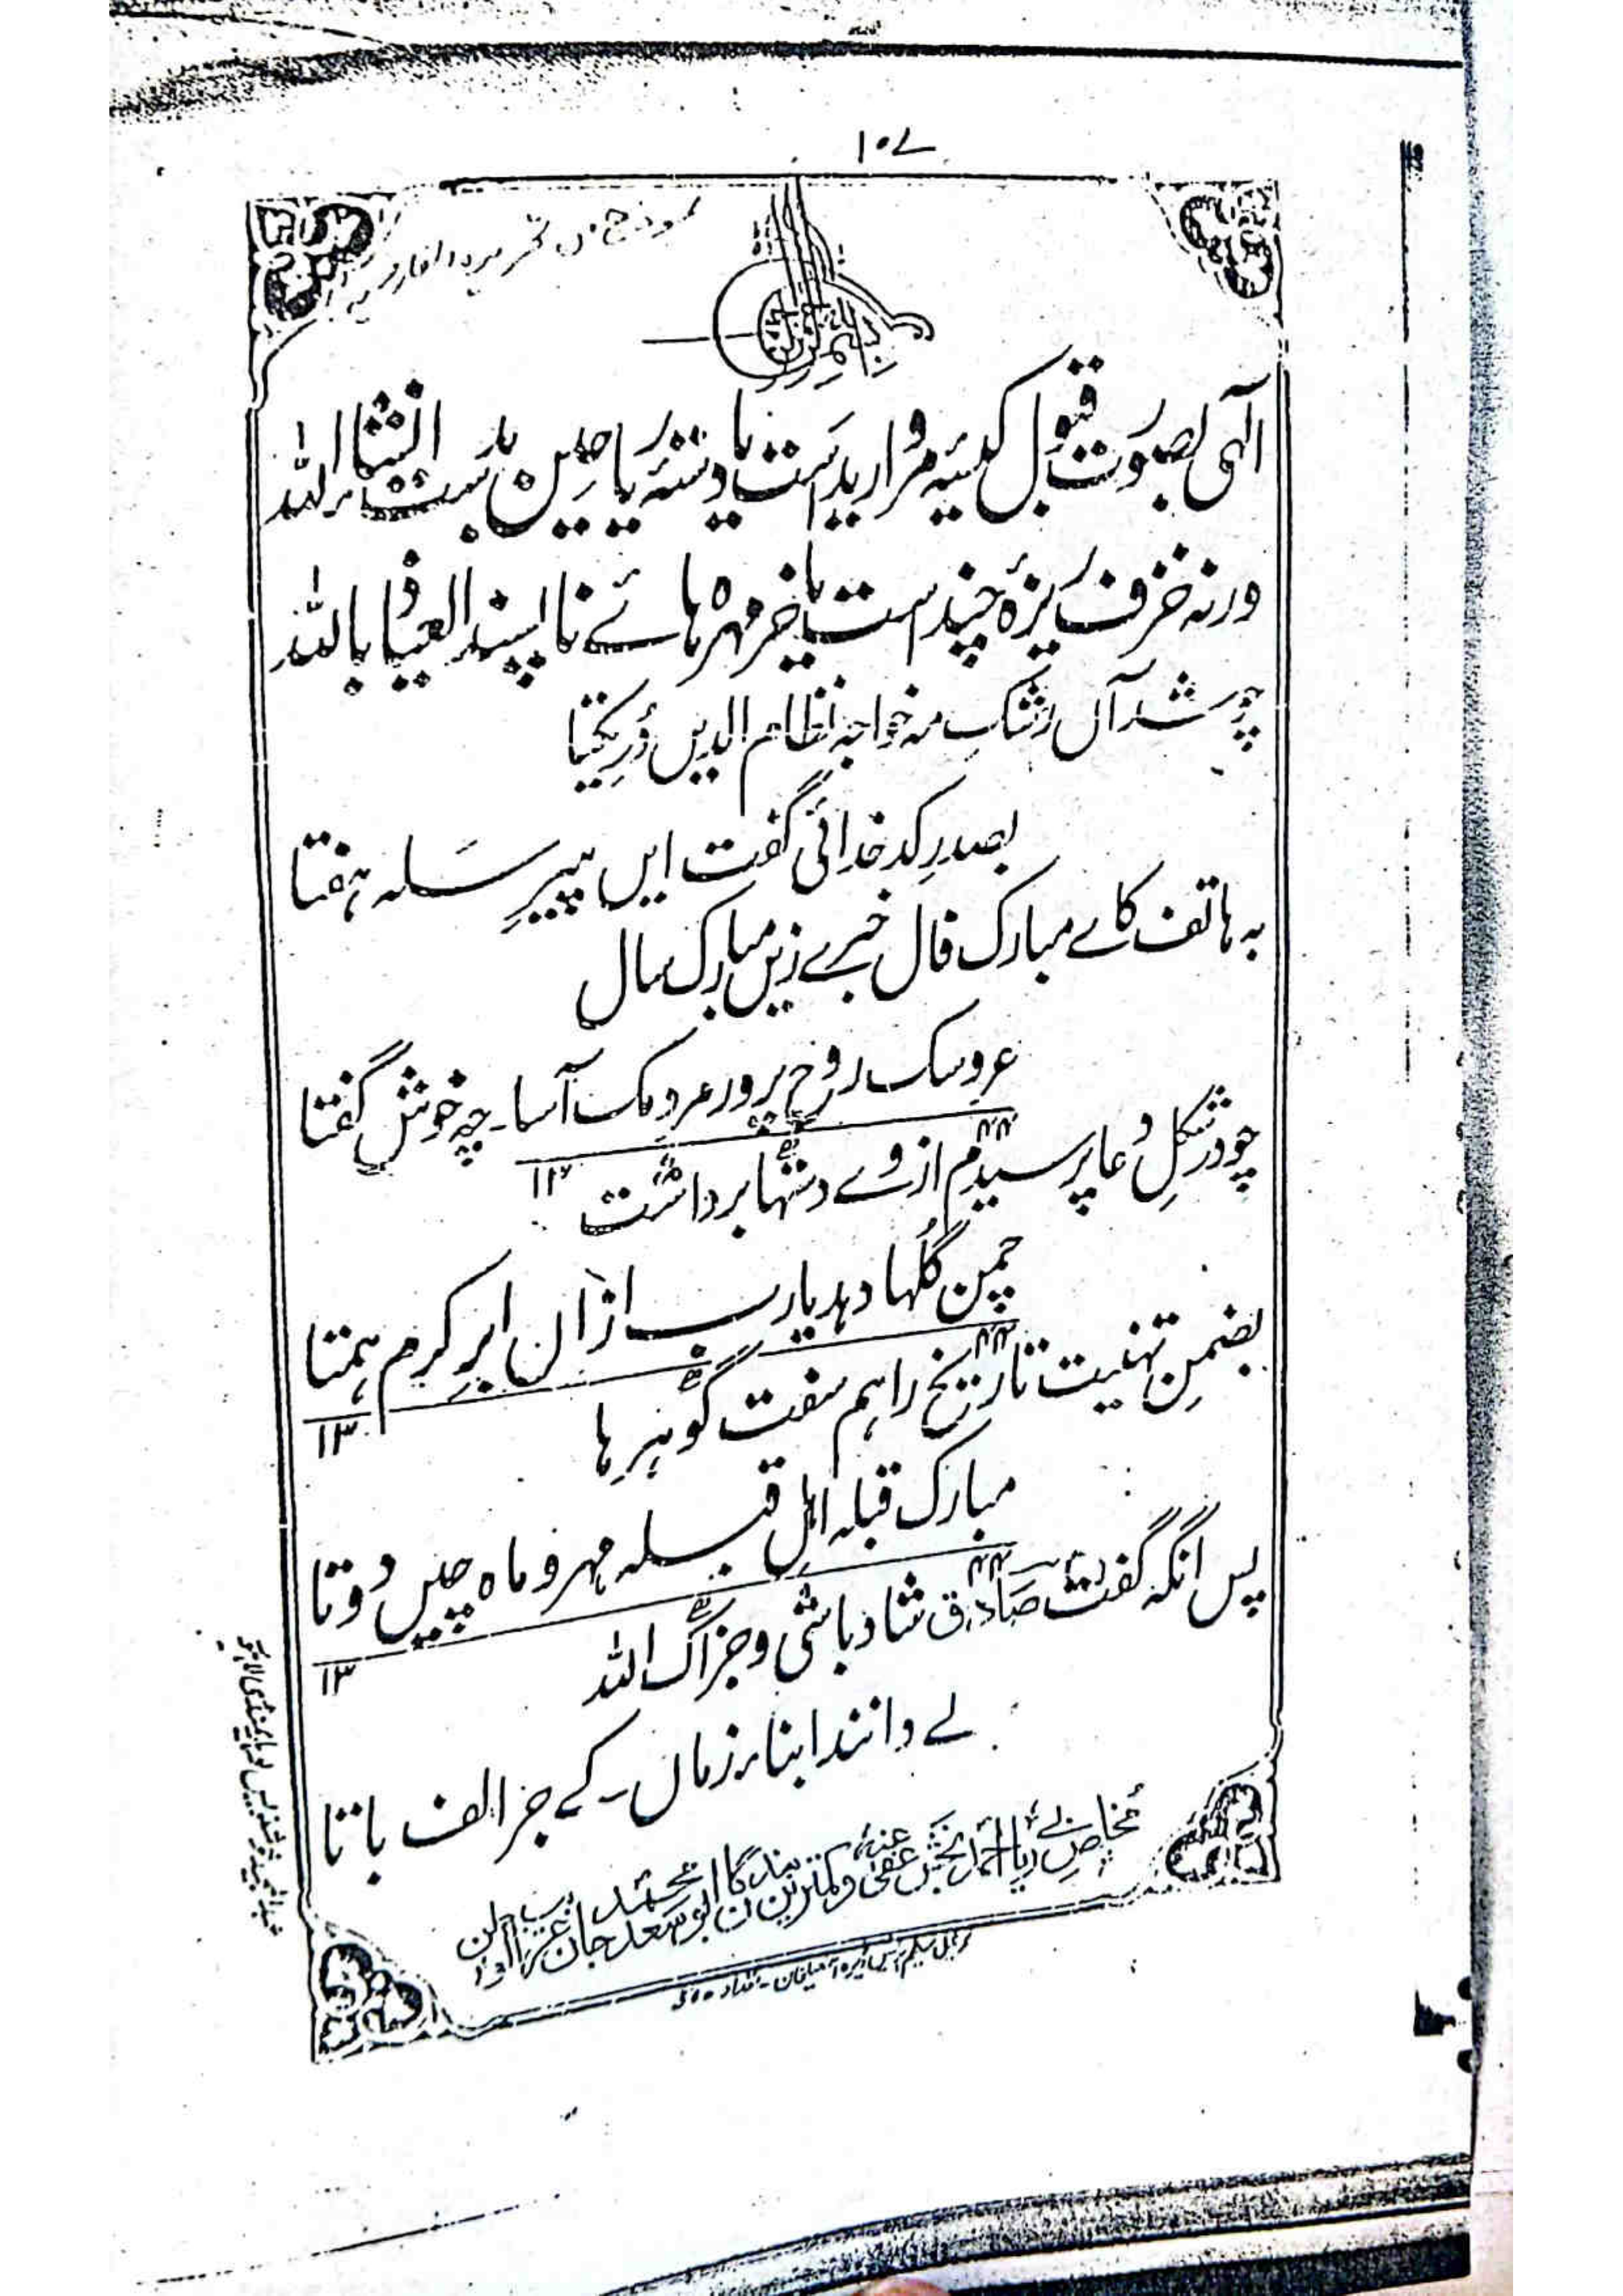 ۱۰۷
الٰہی بصورت قبول کیسۂ مروارید است یا دستۂ ریاحین بابست انشاء اللہ
ورنہ خزف ریزۂ چند است یا خرمہرہ ہائے نا پسند العیاذ باللہ
چو شد آں رشک مہ خواجہ نظام الدیں دُرِ یکتا
بصدرِ کدخدائی گفت ایں پیرِ سلہ ہفتا
بہ ہاتف کاے مبارک فال خبرے زیں مبارک سال
عروسک روح پرور مردمک آسا۔ چہ خوش گفتا
۱۳۴۴
چو در شکلِ دعا پرسیدم از وے دستہا برداشت
چمن گلہا دہد یارب ازاں ابرِ کرم ہمتا
۱۳۴۴
بضمنِ تہنیت تاریخ را ہم سفت گوہر ہا
مبارک قبلہ اہلِ قبلہ مہر و ماہ چیں دوتا
۱۳۴۴
پس آنگہ گفت صادق شاد باشی و جزاک اللہ
لے دانند ابناء زماں۔ کے جز الف با تا
مخلص بے ریا احمد بخش عفی عنہ وکمترین بندگان ابو سعد محمد جان